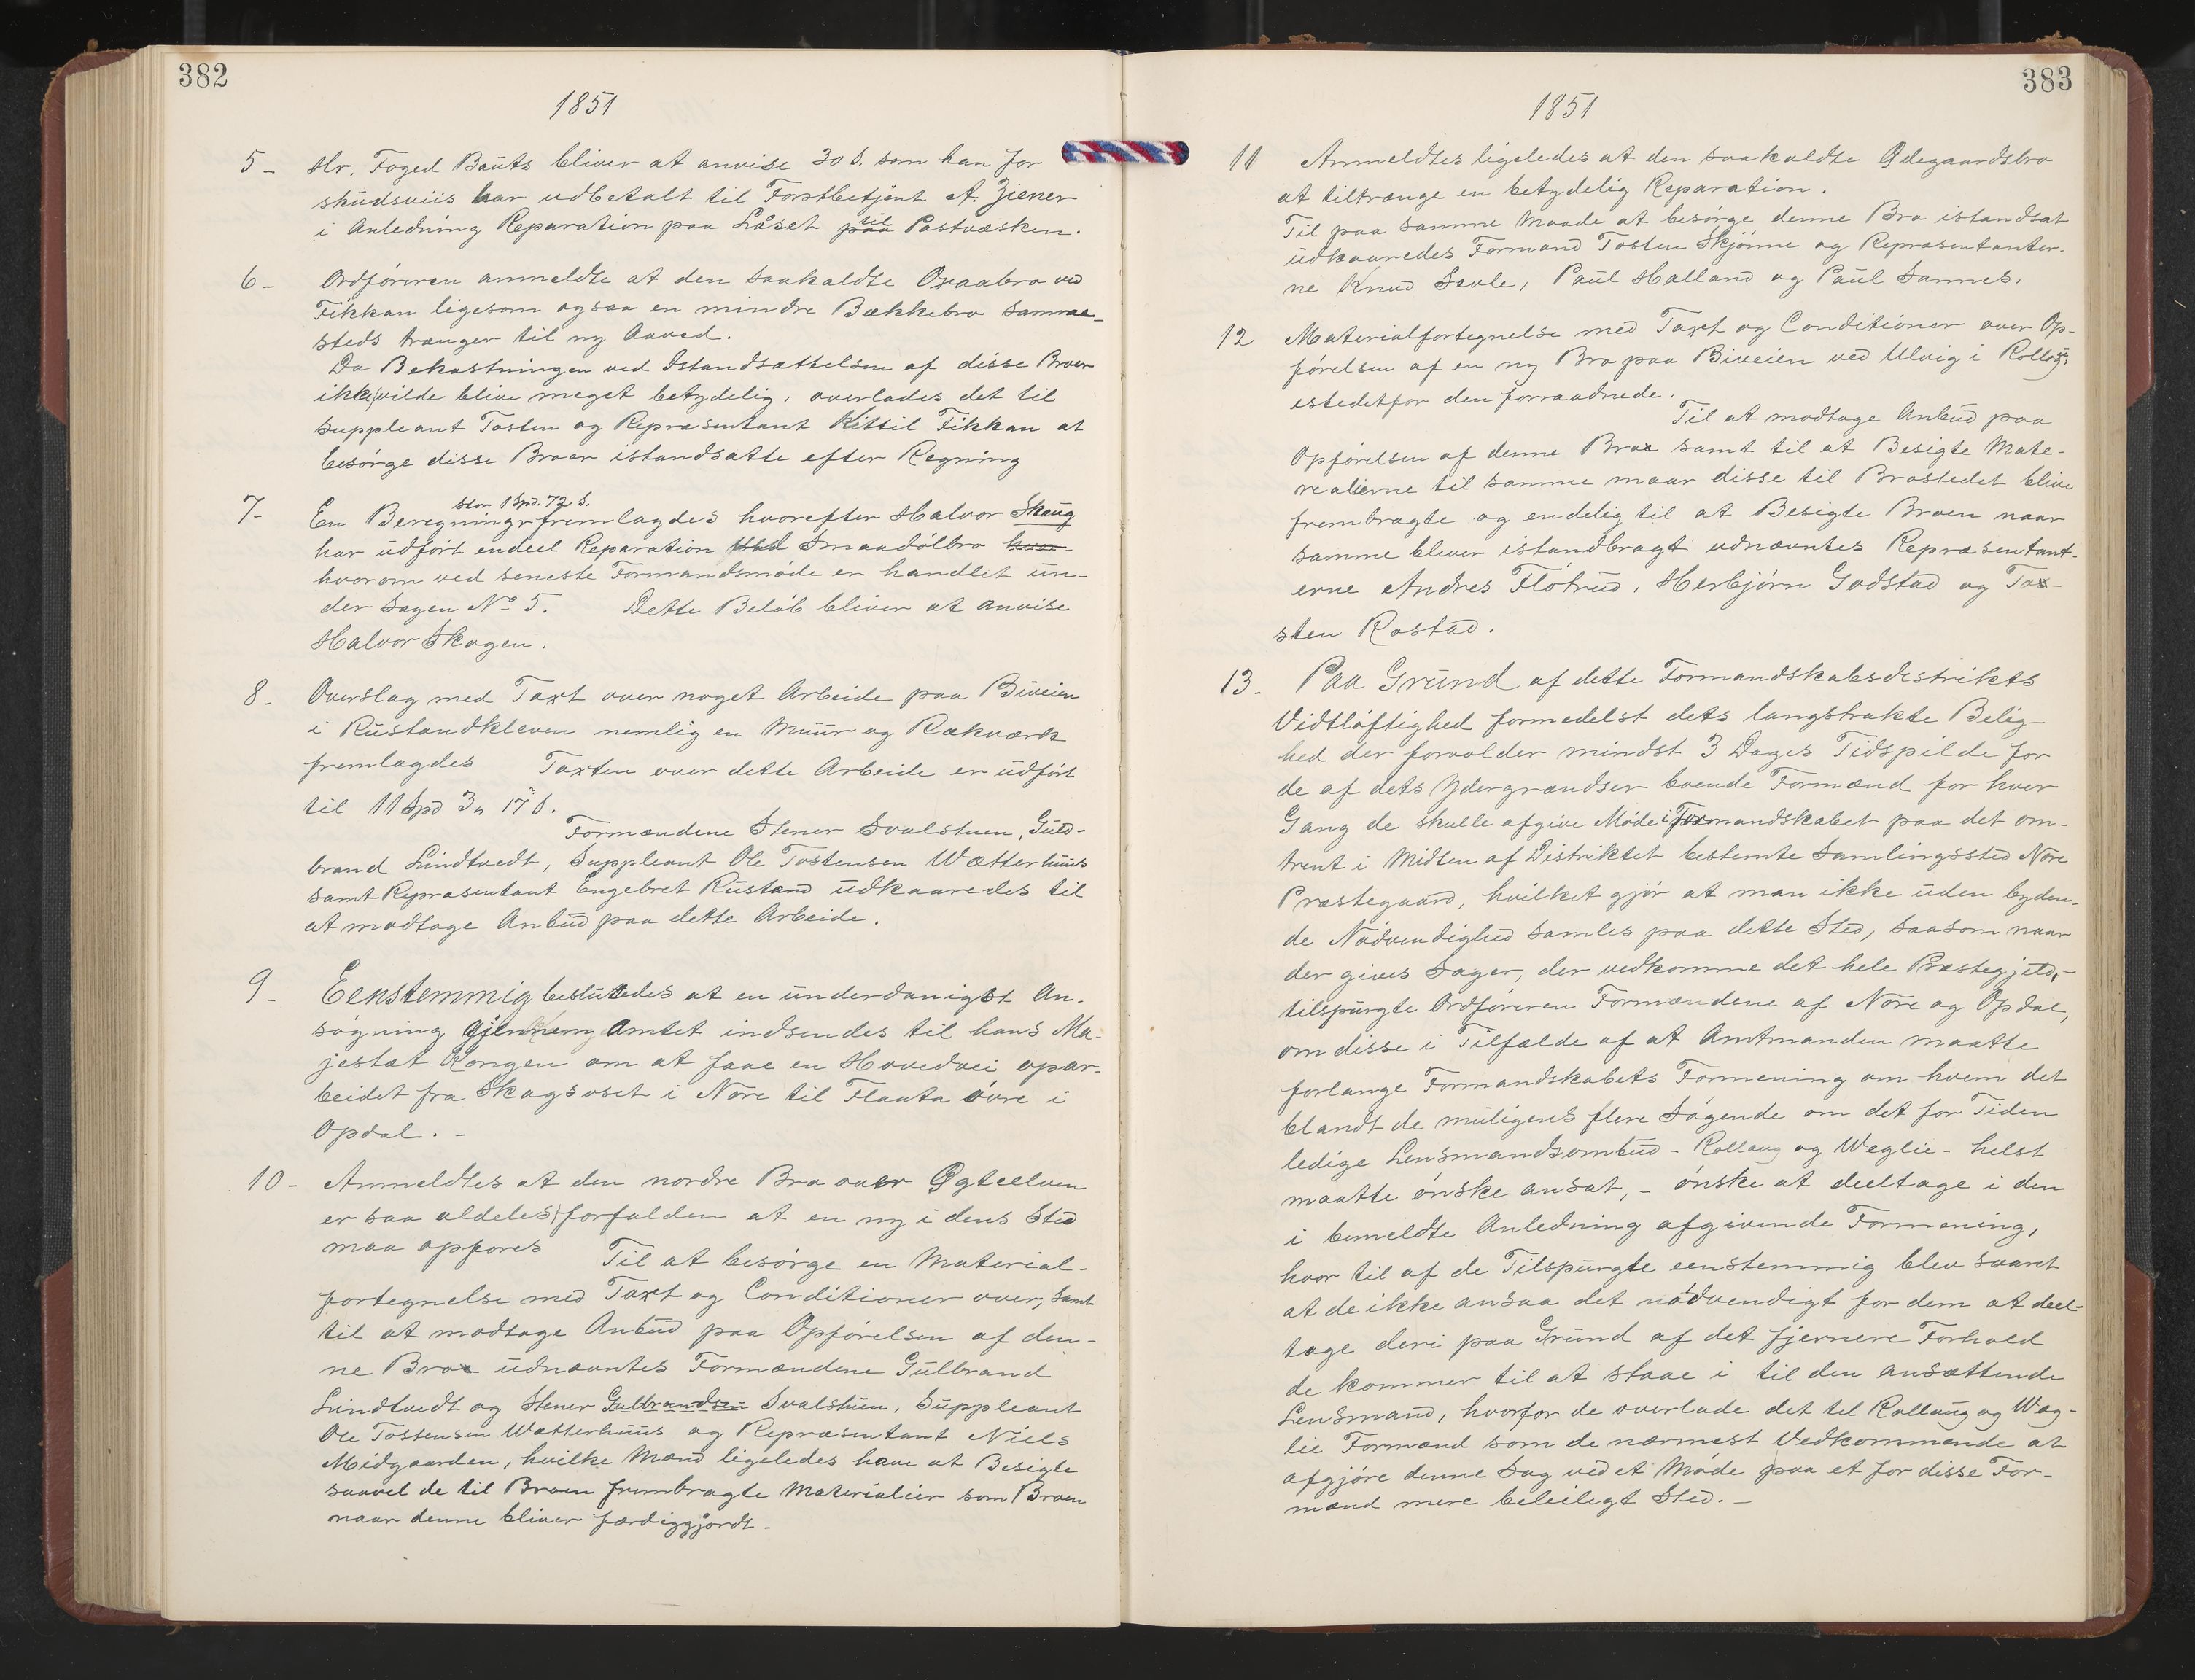 382
1851
5 - Hr. Foged Bauts bliver at anvise 30 s. som han for
skudsviis har udbetalt til Forstbetjent A. Ziener
i Anledning Reparation paa Låset paa til Postvæsken.
6 - Ordføreren anmeldte at den saakaldte Oxaabro ved
Fikkan ligesom ogsaa en mindre Bækkebro samme-
steds trænger til ny Aaved.
Da Bekostningen ved Istandsættelsen af disse Broer
ikke vilde blive meget betydelig, overlades det til
Suppleant Tosten og Repræsentant Kittil Fikkan at
besørge disse Broer istandsatte efter Regning
7 - En Beregning stor 1 Spd. 72 s. fremlagdes hvorefter Halvor Skaug
har udført endeel Reparation ved Smaadølbro hvor-
hvorom ved seneste Formandsmøde er handlet un-
der Sagen No 5. Dette Beløb bliver at anvise
Halvor Skogen.
8 - Overslag med Taxt over noget Arbeide paa Biveien
i Rustandkleven nemlig en Muur og Rækværk
fremlagdes Taxten over dette Arbeide er udført
til 11 Spd 3 " 17 s.
Formændene Stener Svalstuen, Guld-
brand Lindtvedt, Suppleant Ole Tostensen Wætterhuus
samt Repræsentant Engebret Rustand udkaaredes til
at modtage Anbud paa dette Arbeide.
9 - Eenstemmig besluttedes at en underdanigst An-
søgning gjennem Amtet indsendes til hans Ma-
jestæt Kongen om at faae en Hovedvei opar-
beidet fra Skagsoset i Nore til Flaata øvre i
Opdal. -
10 - Anmeldtes at den nordre Bro over Øgteelven
er saa aldeles forfalden at en ny i dens Sted
maa opføres Til at besørge en Material-
fortegnelse med Taxt og Conditioner over, samt
til at modtage Anbud paa Opførelsen af den-
ne Bro udnævntes Formændene Gulbrand
Lindtvedt og Stener Gulbrandsen Svalstuen, Suppleant
Ole Tostensen Wætterhuus og Repræsentant Niels
Midgaarden, hvilke Mænd ligeledes have at Besigte
saavel de til Broen frembragte Materialier som Broen
naar denne bliver færdiggjordt -
383
1851
11 Anmeldtes ligeledes at den saakaldte Ødegaardsbro
at tiltrænge en betydelig Reparation.
Til paa samme Maade at besørge denne Bro istandsat
udkaaredes Formand Tosten Skjønne og Repræsentanter-
ne Knud Sevle, Paul Halland og Paul Sannes.
12 Materialfortegnelse med Taxt og Conditioner over Op-
førelsen af en ny Bro paa Biveien ved Ulvig i Rollag
istedetfor den forraadnede.
Til at modtage Anbud paa
Opførelsen af denne Bro samt til at Besigte Mate-
realierne til samme naar disse til Brostedet blive
frembragte og endelig til at Besigte Broen naar
samme bliver istandbragt udnævntes Repræsentant-
erne Andres Fløtrud, Herbjørn Godstad og To-
sten Rostad.
13 - Paa Grund af dette Formandskabsdistrikts
Vidtløftighed formedelst dets langstrakte Belig-
hed der forvolder mindst 3 Dages Tidspilde for
de af dets Ydergrændser boende Formænd for hver
Gang de skulle afgive Møde i Formandskabet paa det om-
trent i Midten af Distriktet bestemte Samlingssted Nore
Præstegaard, hvilket gjør at man ikke uden byden-
de Nødvendighed samles paa dette Sted, saasom naar
der gives Sager, der vedkomme det hele Præstegjeld, -
tilspurgte Ordføreren Formændene af Nore og Opdal,
om disse i Tilfælde af at Amtmanden maatte
forlange Formandskabets Formening om hvem det
blandt de muligens flere Søgende om det for Tiden
ledige Lensmandsombud - Rollaug og Weglie - helst
maatte ønske ansat, - ønske at deeltage i den
i bemeldte Anledning afgivende Formening,
hvor til af de Tilspurgte eenstemmig blev svaret
at de ikke ansaa det nødvendigt for dem at deel-
tage deri paa Grund af det fjernere Forhold
de kommer til at staae i til den ansættende
Lensmand, hvorfor de overlade det til Rollaug og Weg-
lie Formænd som de nærmest Vedkommende at
afgjøre denne Sag ved et Møde paa et for disse For-
mænd mere beleiligt Sted. -